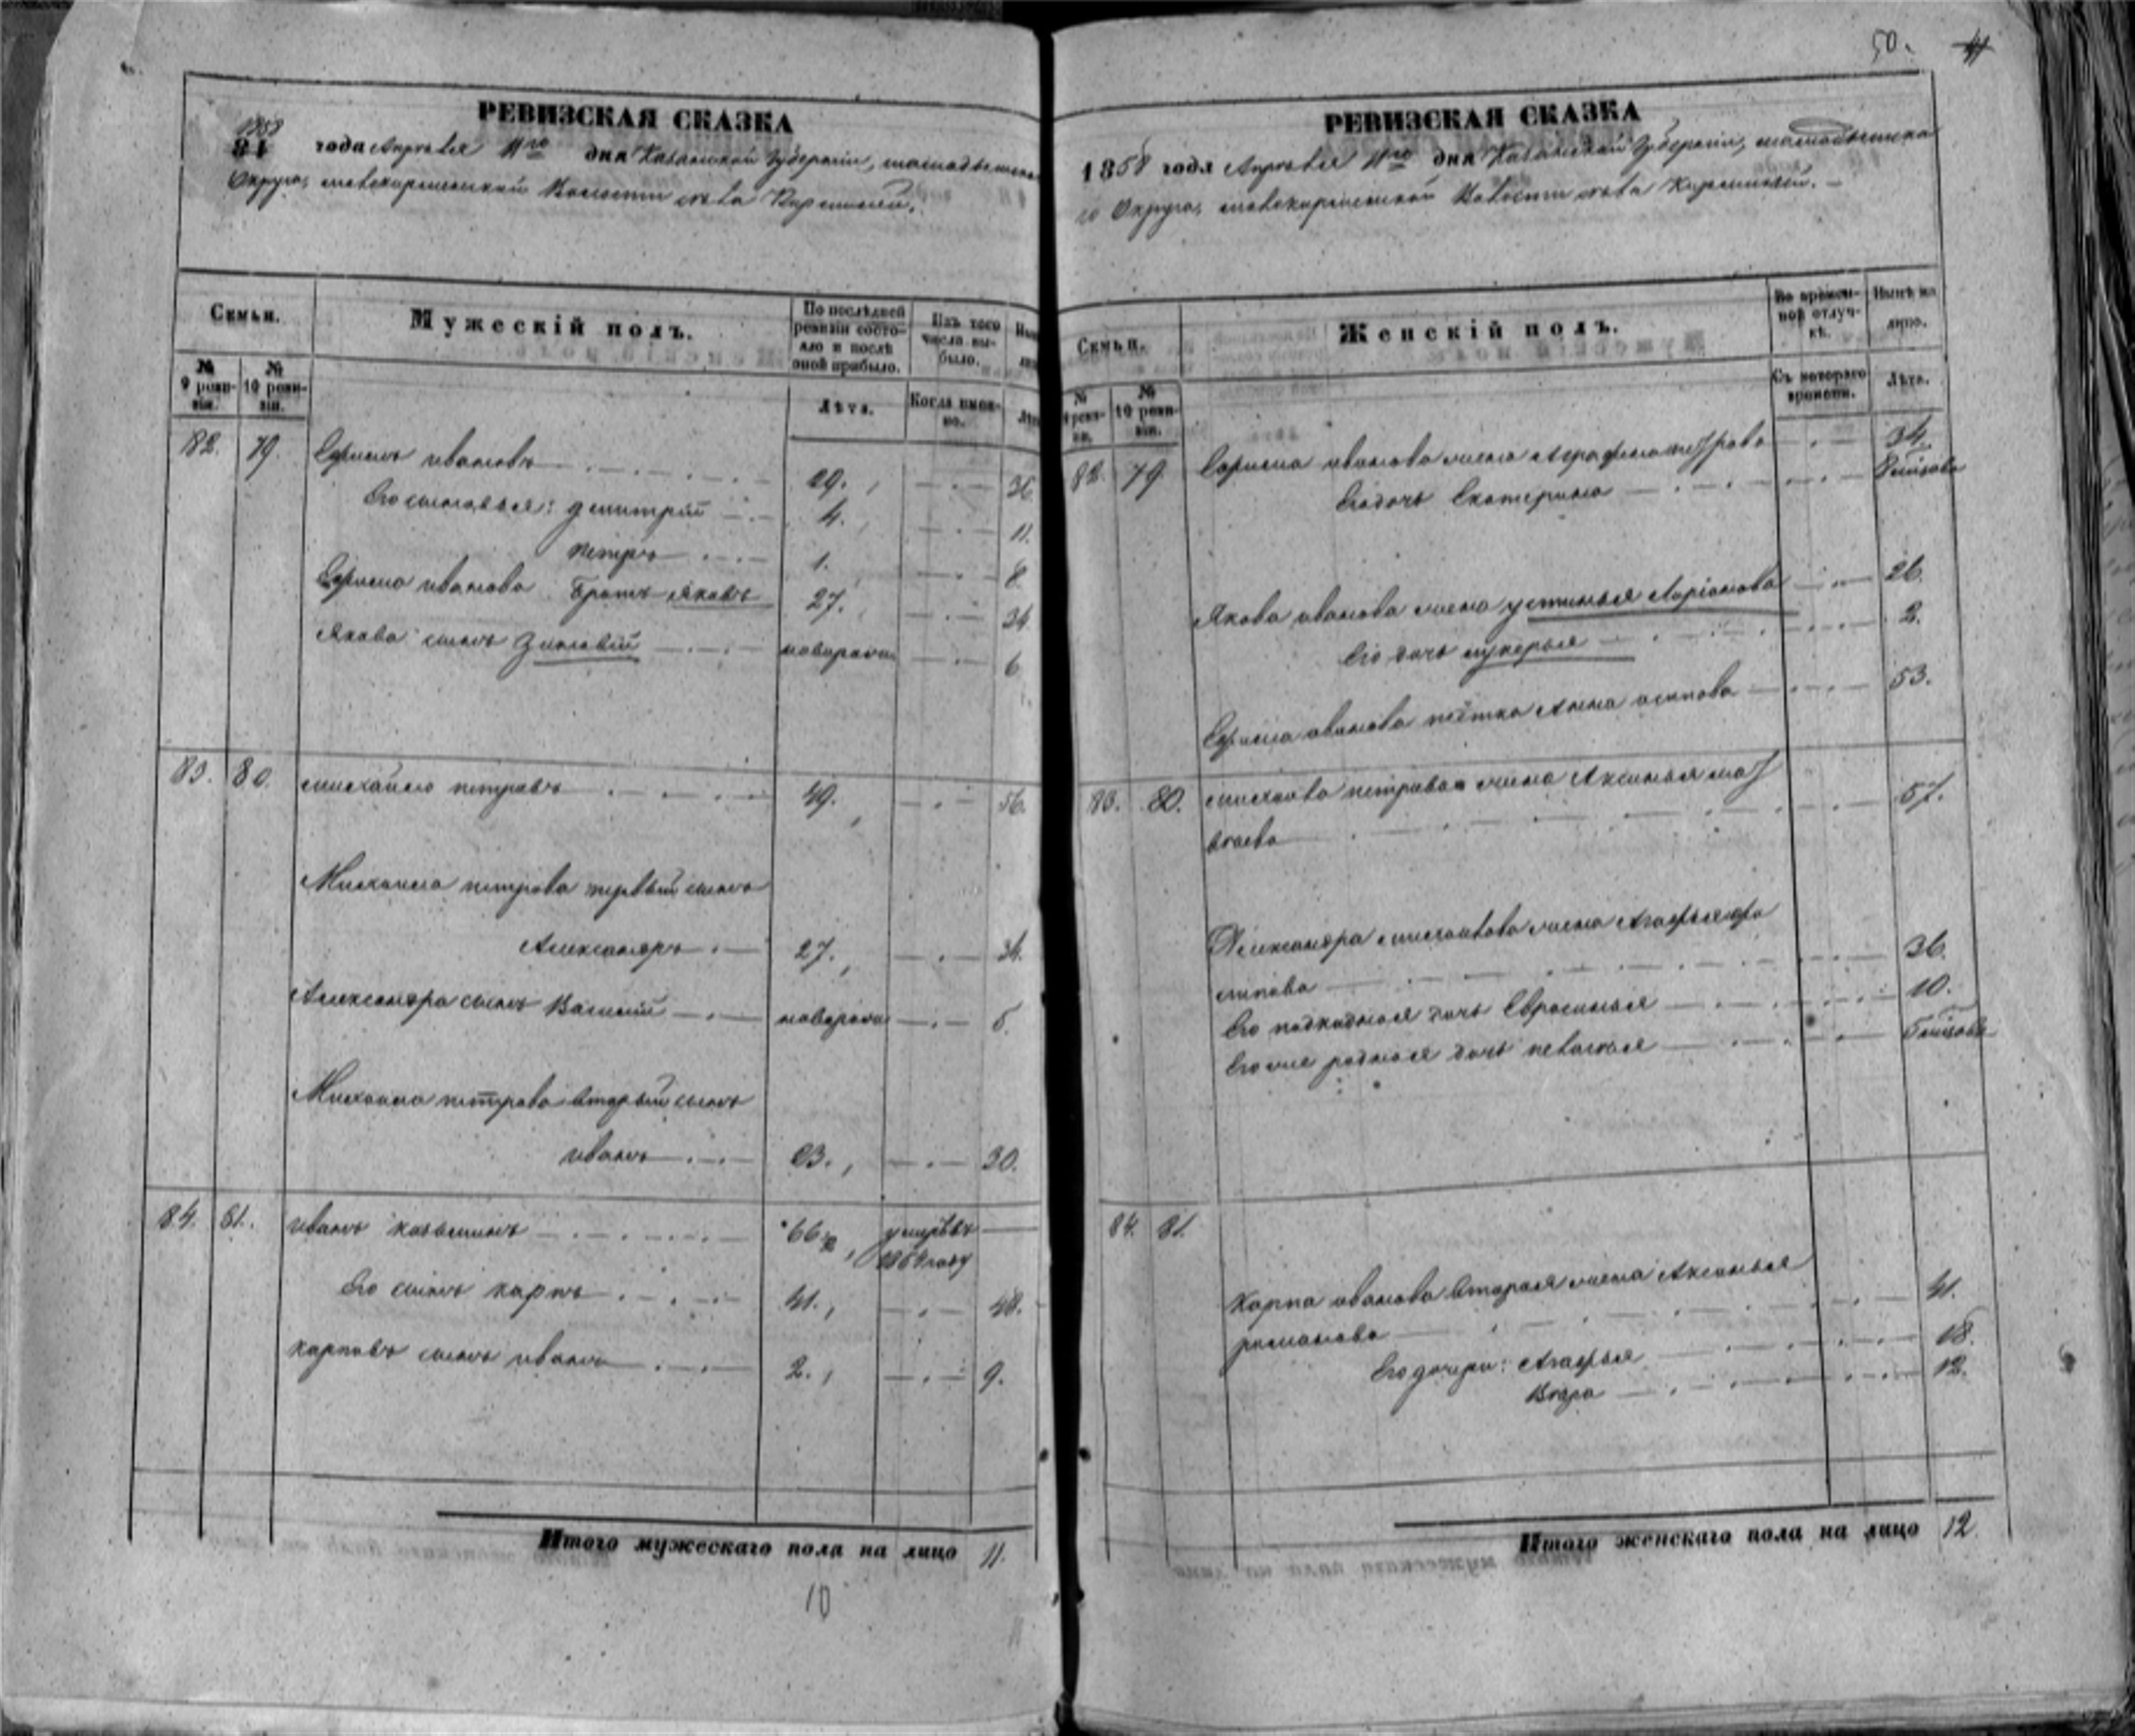 РЕВИЗСКАЯ СКАЗКА
1858 года Апреля 11го дня Казанской Губернии,
Округа, Волости села Киреметей.
Семьи.
Мужескій полъ.
По послѣдней ревизіи состояло и послѣ оной прибыло.
Изъ того числа выбыло.
№ 9 ревизіи.
№ 10 ревизіи.
Лѣта.
Когда именно.
82. 79. Ефимъ ивановъ 29. 36.
Его сыновья: дмитрій 4. 11.
петръ 1. 8.
Ефима иванова братъ яковъ 27. 34.
Якова сынъ Зиновій новорож 6
83. 80. михайло петровъ 49. 56.
Михайла петрова первый сынъ
Александръ 27. 34.
Александра сынъ Василій новорож 5.
Михайла петрова вторый сынъ
иванъ 23. 30.
84. 81. иванъ 66 умеръ въ
1854 году
Его сынъ карпъ 41. 48.
карповъ сынъ иванъ 2. 9.
Итого мужескаго пола на лицо 11.
10
50.
РЕВИЗСКАЯ СКАЗКА
1858 года Апреля 11го дня Казанской Губернии,
го Округа, Волости села Киреметей.
Семьи.
Женскій полъ.
Во временной отлучкѣ.
Нынѣ на лицо.
№ 9 ревизіи.
№ 10 ревизіи.
Съ котораго времени.
Лѣта.
82. 79. Ефима иванова жена Аграфена петрова 34.
Его дочь Екатерина
Якова иванова жена устинья Ларіонова 26.
Его дочь лукерья 2.
Ефима иванова тётка Анна осипова 53.
83. 80. михайла петрова жена Аксинья мат
веева 57.
Александра михайлова жена Агафья
36.
Его дочь Евросинья 10.
Его же родная дочь пелагея
84. 81.
Карпа иванова вторая жена Аксинья 41.
романова
Его дочери: Агафья 18.
Вера 12.
Итого женскаго пола на лицо 12.